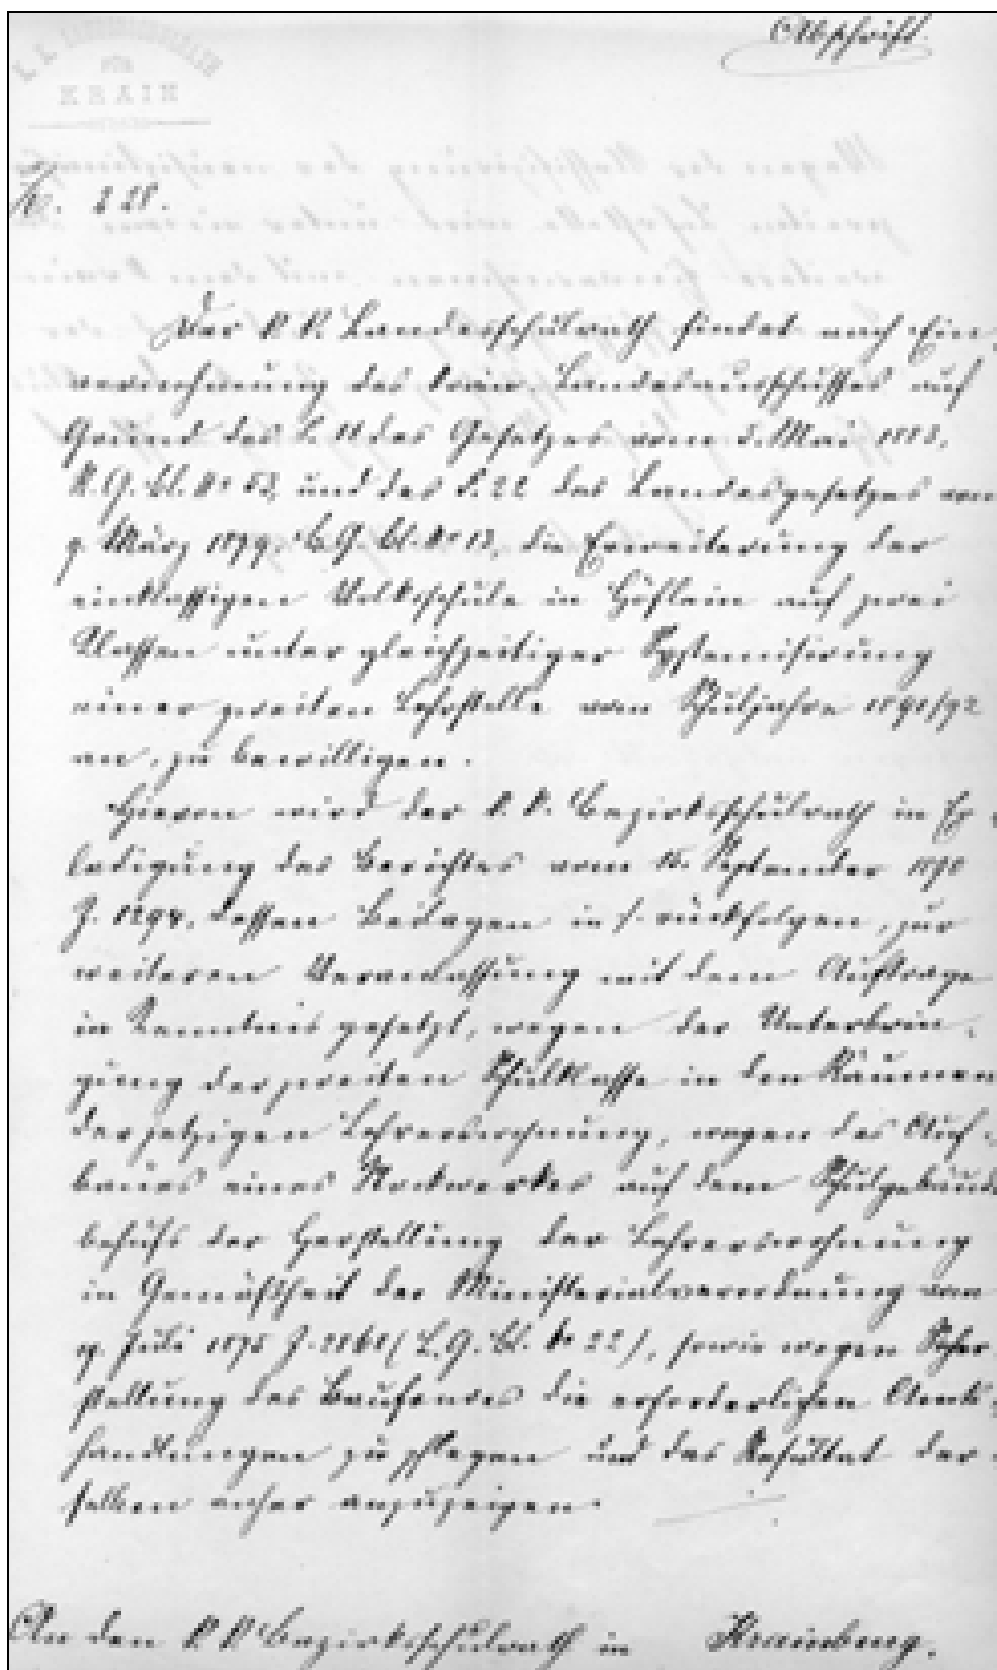 Abschrift.
K. K. LANDESSCHULRATH
FÜR
KRAIN
228.
Der k. k. Landesschulrath findet nach Ein-
vernehmung des krain. Landesausschusses auf
Grund des §. 11 des Gesetzes vom 2. Mai 1883,
R. G. Bl. No 53, und des §. 22 des Landesgesetzes vom
9. März 1879, L. G. Bl. No 13, die Erweiterung der
einklassigen Volksschule in Höflein auf zwei
Klassen unter gleichzeitiger Systemisirung
einer zweiten Lehrstelle vom Schuljahre 1891/92
an, zu bewilligen.
Hievon wird der k. k. Bezirksschulrath in Er-
ledigung des Berichtes vom 15. September 1890
Z. 1294, dessen Beilagen in /. rückfolgen, zur
weiteren Veranlassung mit dem Auftrage
in Kenntnis gesetzt, wegen der Unterbrin-
gung der zweiten Schulklasse in den Räumen
der jetzigen Lehrerswohnung, wegen des Auf-
baues eines Stockwerkes auf dem Schulgebäude
behufs der Herstellung der Lehrerswohnung
in Gemäßheit der Ministerialverordnung vom
9. Juli 1875 Z. 2868 (L. G. Bl. No 22), sowie wegen Sicher-
stellung des Baufondes die erforderlichen Amts-
handlungen zu pflegen und das Resultat der-
selben anher anzuzeigen.
An den k. k. Bezirksschulrath in Krainburg.